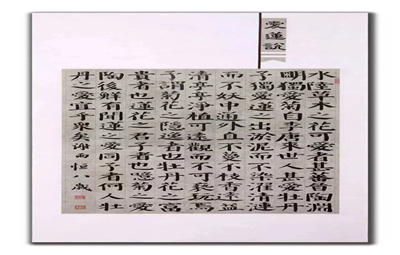 愛蓮說
水陸草木之花可愛者甚蕃晉陶淵
明獨愛菊自李唐來世人甚愛牡丹
予獨愛蓮之出於泥而不染濯清漣
而不妖中通外直不蔓不枝香遠益
清亭亭淨植可遠觀而不可褻玩焉
予謂菊花之隱逸者也牡丹花之富
貴者也蓮花之君子者也噫菊之愛
陶後鮮有聞蓮之愛同予者何人牡
丹之愛宜乎眾矣